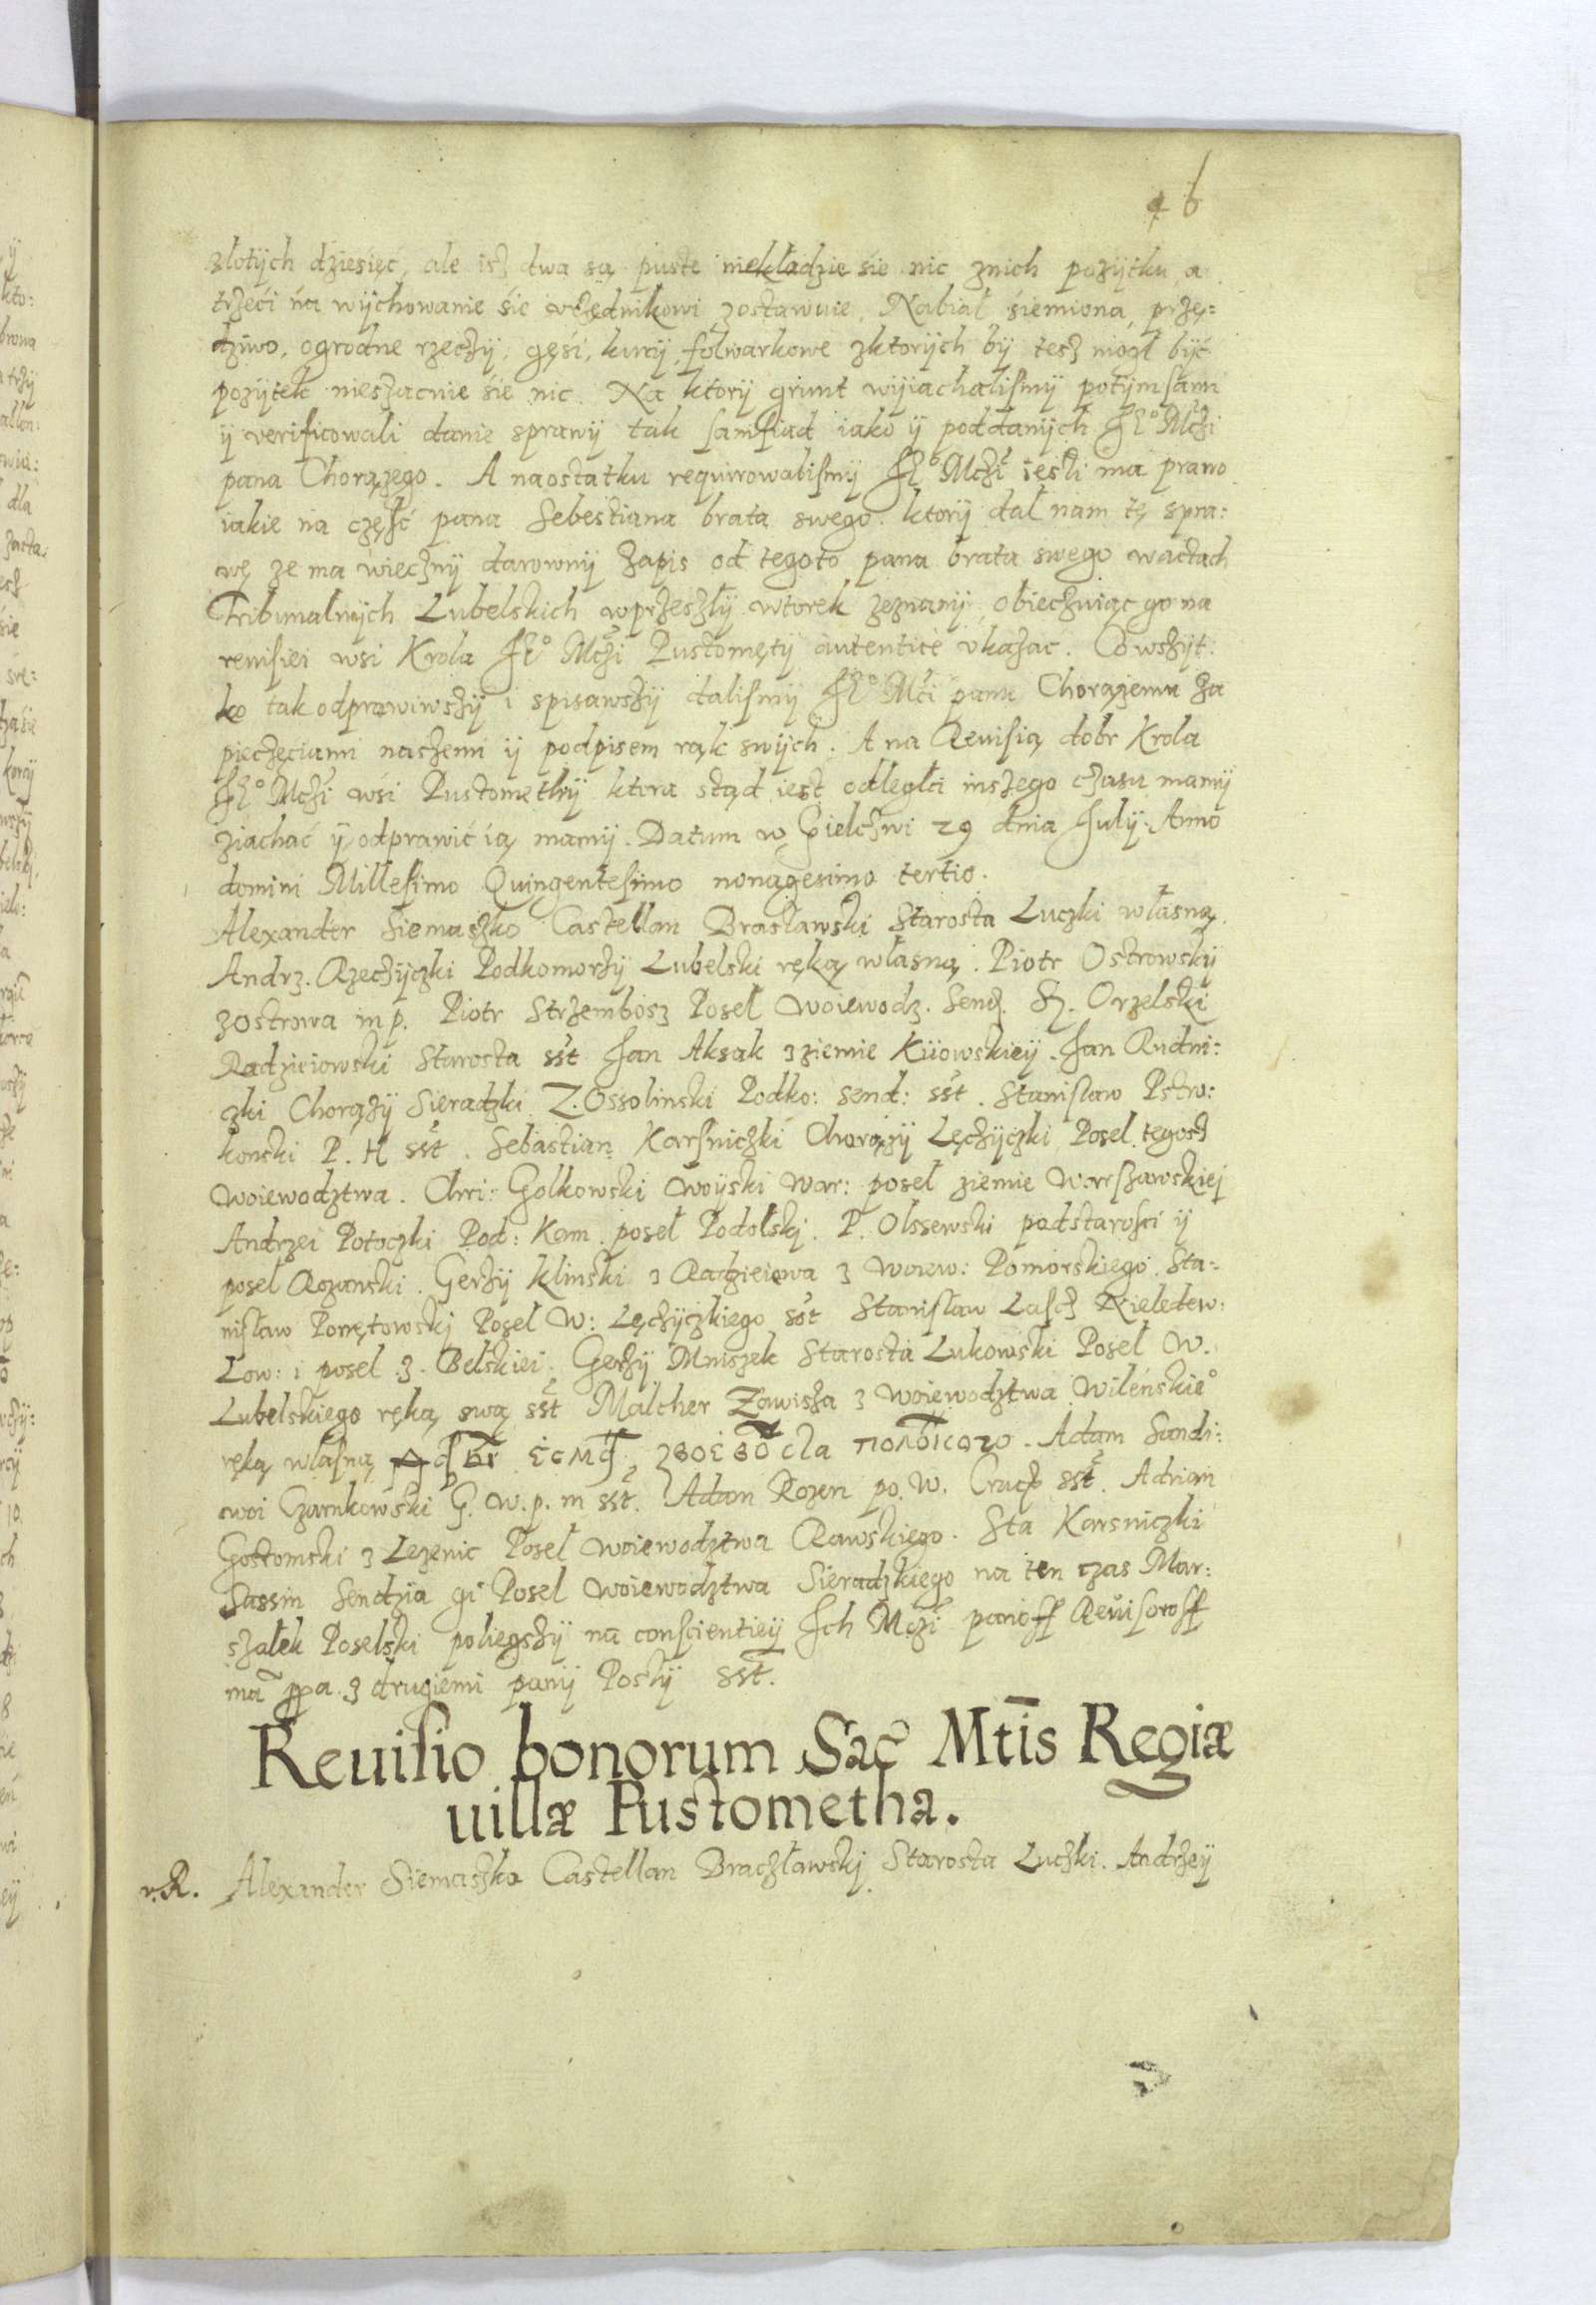 46
złotych dziesięć, ale isz dwa są puste niekładzie sie nic znich pozytku, a
trzeci na wychowanie sie vrzędnikowi zostawuie. Nabiał siemiona, przę:
dziwo, ogrodne rzeczy, gęsi, kury, folwarkowe zktorych by tesz mogł być
pozytek nieszacuie sie nic. Na ktory grunt wyiachalismy potym sami
y verificowali danie sprawy tak sąmsiad iako y poddanych JEº Mczi
pana Chorązego. A naostatku requirowalismy JEº Mczi iesli ma prawo
iakie na częsć pana Sebestiana brata swego. ktory dał nam tę spra:
wę ze ma wieczny darowny zapis od tegoto pana brata swego wactach
Tribunalnych Lubelskich wprzeszły wtorek zeznany, obieczuiąc go na
reuisiei wsi Krola JEº Mczi Pustomęty autentice vkazać. Co wszyt:
ko tak odprawiwszy i spisawszy dalismy JEº Mci panu Chorązemu za
pieczęciami naszemi y podpisem rąk swych. A na Reuisią dobr Krola
JEº Mczi wsi Pustomethy ktora stąd iest odległa inszego czasu mamy
ziachać y odprawić ią mamy. Datum w Gielczwi 29 dnia July. Anno
domini Millesimo Quingentesimo nonagesimo tertio.
Alexander Siemaszko Castellan Brasławski Starosta Luczki własną.
Andrz. Rzeczyczki Podkomorzy Lubelski ręką własną. Piotr Ostrowsky
zostrowa mp. Piotr Strzembosz Poseł Woiewodz. Send. Orzelski
Radzieiowski Starosta sst Jan Aksak zziemie Kiiowskiey. Jan Rudni:
czki Chorązy Sieradzki Z. Ossolinski Podko: send: sst. Stanisław Pstro:
konski P. H sst. Sebastian Karsniczki Chorązy Lęczyczki Posel tegosz
Woiewodztwa. Chri: Golkowski Woyski War: poseł ziemie Warszawskiej
Andrzei Potoczki Pod: Kam. poseł Podolskj. P. Olssewski podstarosci y
posel Rozanski. Gerzy Klinski z Radzieiewa z Woiew: Pomorskiego. Sta:
nisław Ponętowskj Poseł W: Lęczyczkiego sst Stanisław Lascz Nieledew:
Low: i posel z. Belskiei. Gerzy Mniszek Starosta Lukowski Poseł W.
Lubelskiego ręką swą sst Malcher Zawisza z Woiewodztwa Wileńskieº
ręką własną полоцкого. Adam Sandi:
woi Czarnkowski G. W. p. m sst. Adam Rozen po. W. Crac sst. Adrian
Gostomski z Lezenic Poseł Woiewodztwa Rawskiego. Sta Karsniczki
Sassin Sendzia gi Posel Woiewodztwa Sieradzkiego na ten czas Mar:
szałek Poselski poliegszy na conscientiey Jch Mczi panoff Reuisoroff
ma ppa. z drugiemi pany Posły sst.
Reuisio bonorum Sac Mtis Regiæ
uillæ Pustometha.
r. R. Alexander Siemaszko Castellan Braczławskj Starosta Luczki. Andrzey